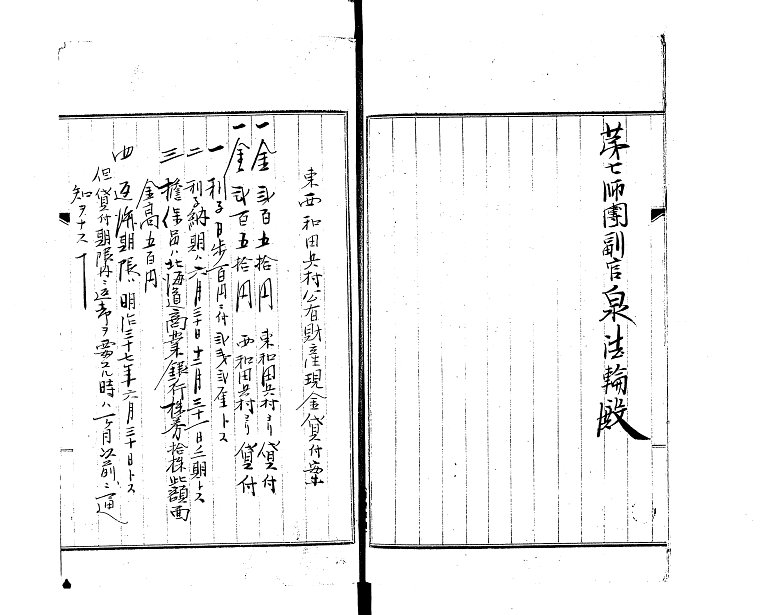 第七師團副官泉法輪殿
東西和田兵村公有財産現金貸付案
一金弐百五拾円 東和田兵村ヨリ貸付
一金弐百五拾円 西和田兵村ヨリ貸付
一 利子日歩百円ニ付弐銭弐厘トス
二 利子納期ハ六月三十日十二月三十一日ノ二期トス
三 擔保品ハ北海道商業銀行株券拾株此額面
金高五百円
四 返済期限ハ明治三十七年六月三十日トス
但貸付期限内ニ返却ヲ要スル時ハ一ヶ月以前ニ通
知ヲナスヿ